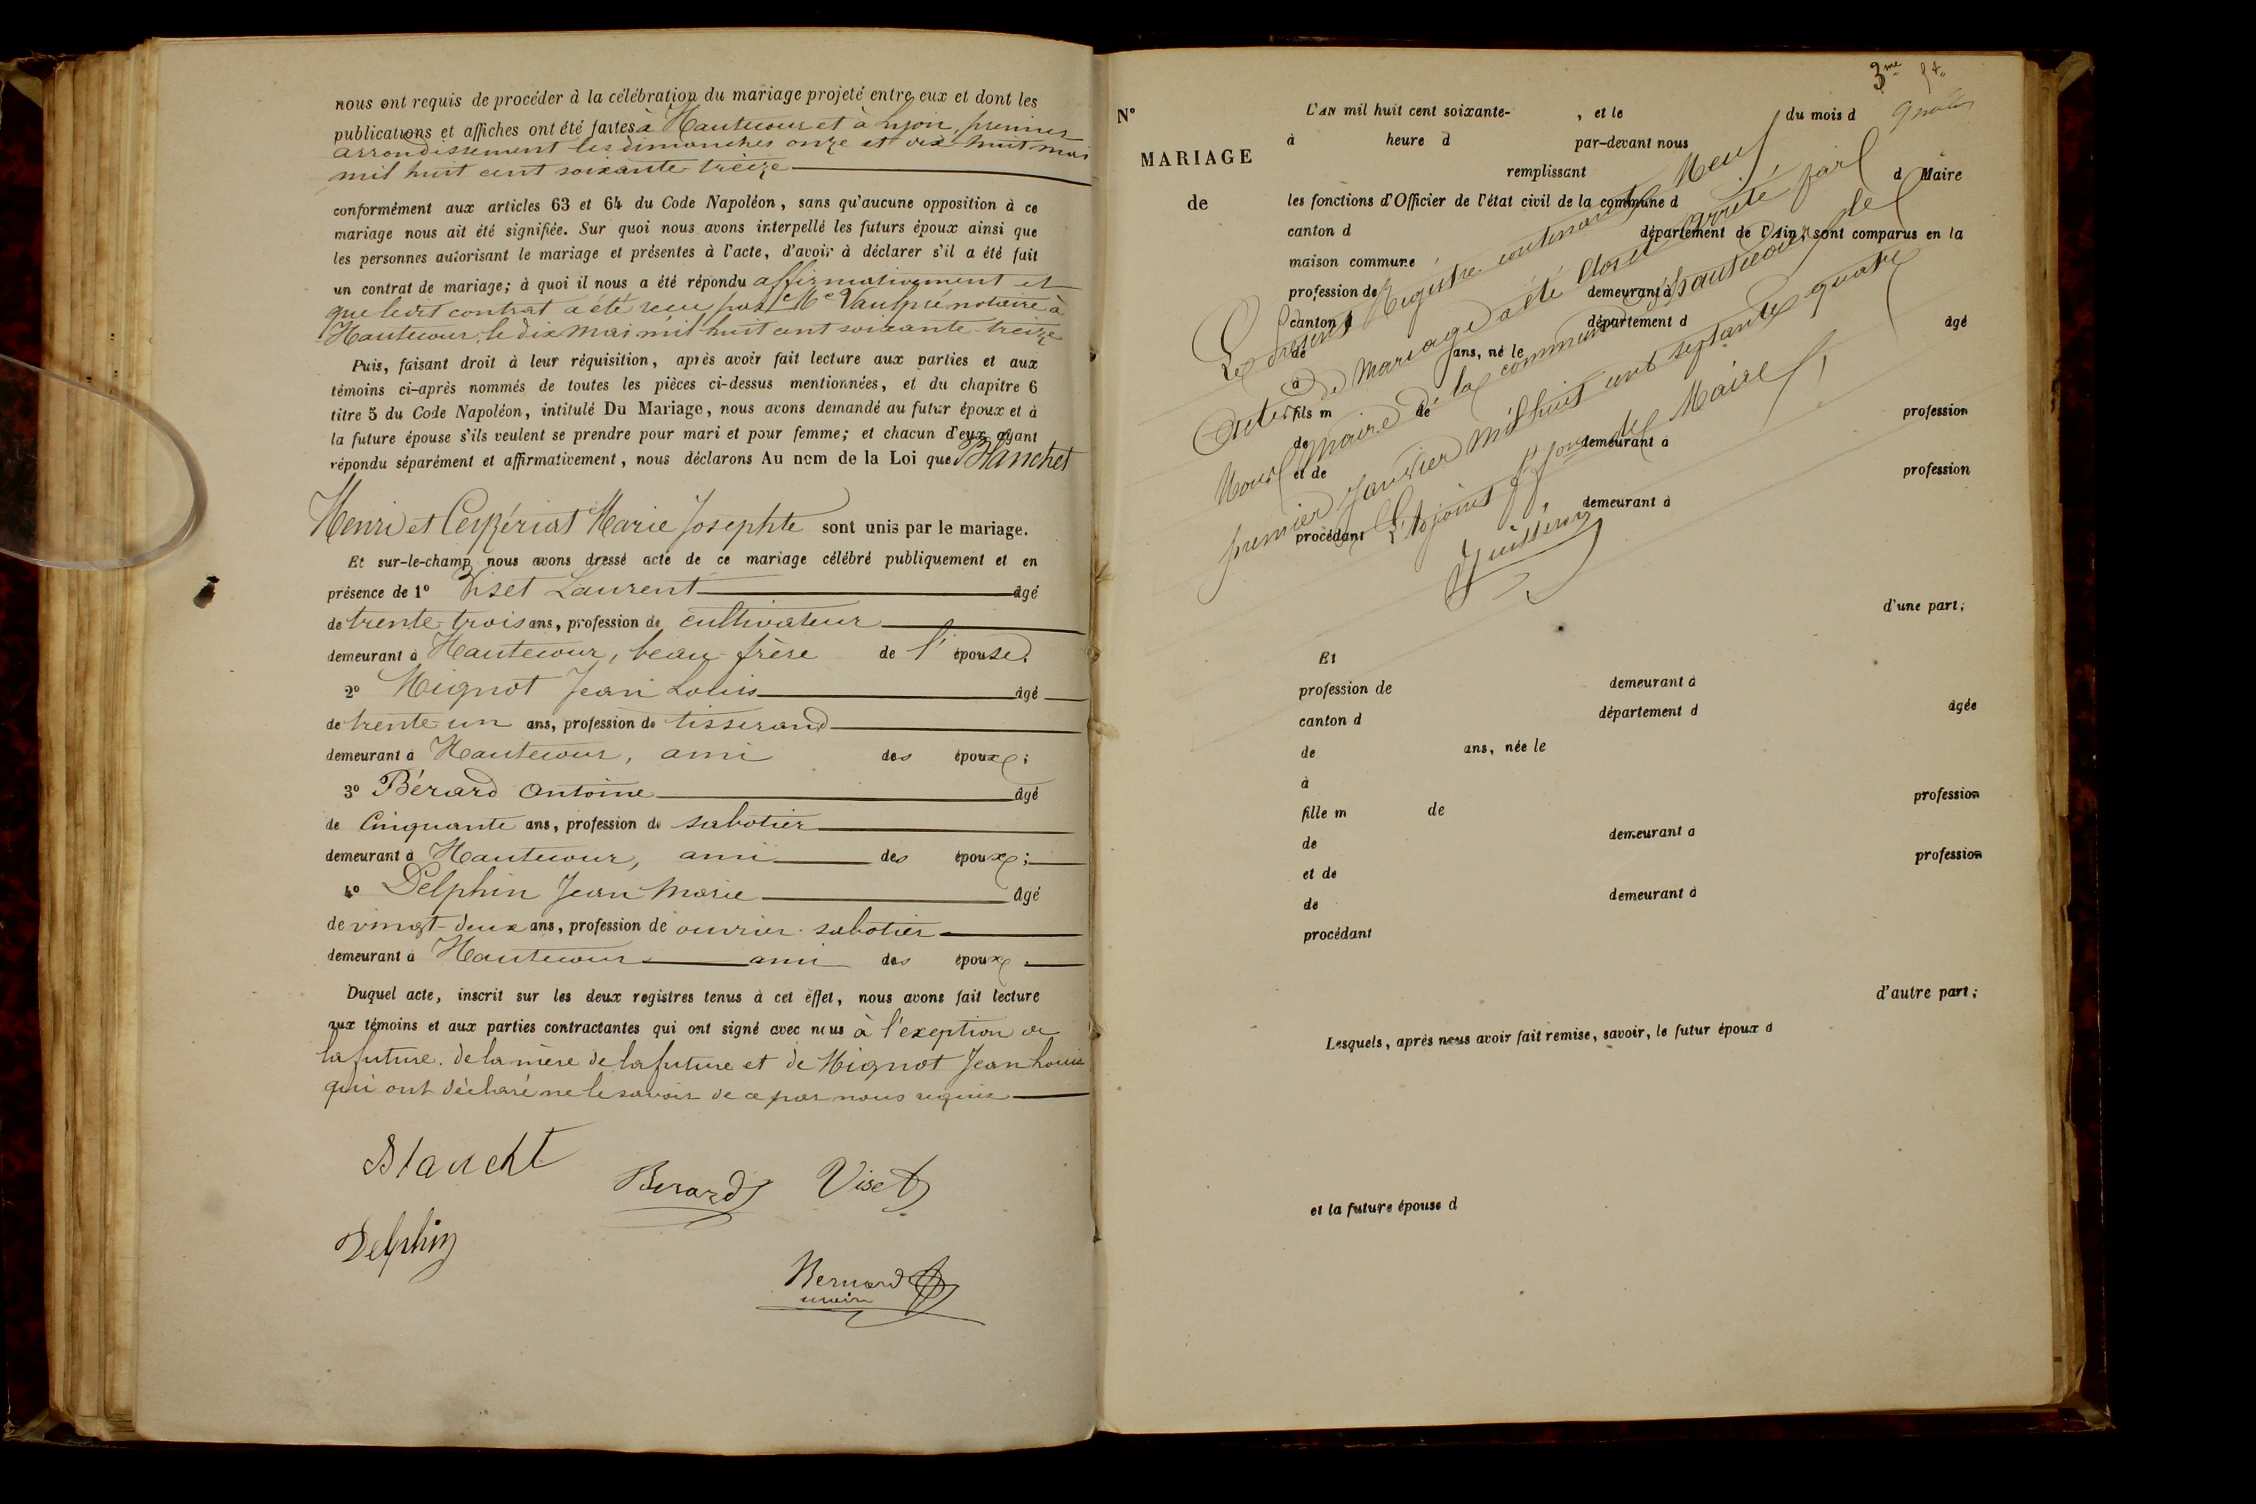 nous ont requis de procéder à la célébration du mariage projeté entre eux et dont les
publications et affiches ont été faites à Hautecour et à Lyon, premier
arrondissement les dimanches onze et dix-huit mai
mil huit cent soixante treize
conformément aux articles 63 et 64 du Code Napoléon, sans qu'aucune opposition à ce
mariage nous ait été signifiée. Sur quoi nous avons interpellé les futurs époux ainsi que
les personnes autorisant le mariage et présentes à l'acte, d'avoir à déclarer s'il a été fait
un contrat de mariage; à quoi il nous a été répondu affirmativement et
que ledit contrat a été reçu par Me Vaulpré notaire à
Hautecour, le dix mai mil huit cent soixante-treize
Puis, faisant droit à leur réquisition, après avoir fait lecture aux parties et aux
témoins ci-après nommés de toutes les pièces ci-dessus mentionnées, et du chapitre 6
titre 5 du Code Napoléon, intitulé Du Mariage, nous avons demandé au futur époux et à
la future épouse s'ils veulent se prendre pour mari et pour femme; et chacun d'eux ayant
répondu séparément et affirmativement, nous déclarons Au nom de la Loi que Blanchet
Henri et Cerzériat Marie Josephte sont unis par le mariage.
Et sur-le-champ nous avons dressé acte de ce mariage célébré publiquement et en
présence de 1° Viset Laurent âgé
de trente-trois ans, profession de cultivateur
demeurant à Hautecour, beau-frère de l'épouse;
2° Mignot Jean Louis âgé
de trente-un ans, profession de tisserand
demeurant à Hautecour, ami des époux;
3° Bérard Antoine âgé
de Cinquante ans, profession de sabotier
demeurant à Hautecour, ami des époux;
4° Delphin Jean-Marie âgé
de vingt-deux ans, profession de ouvrier sabotier
demeurant à Hautecour ami des époux
Duquel acte, inscrit sur les deux registres tenus à cet effet, nous avons fait lecture
aux témoins et aux parties contractantes qui ont signé avec nous à l'exeption de
la future. de la mère de la future et de Mignot Jean Louis
qui ont déclaré ne le savoir de ce par nous requis
Blanchet
Berard Viset
Delphin
Bernard
maire
3me
N°
MARIAGE
de
L'AN mil huit cent soixante- , et le du mois d
à heure d par-devant nous
remplissant d Maire
les fonctions d'Officier de l'état civil de la commune d
canton d département de l'Ain, sont comparus en la
maison commune
profession de demeurant à
canton d département d âgé
de ans, né le
à
fils m de profession
de demeurant à
et de profession
demeurant à
procédant
Le présent Registre contenant Neuf
Actes de Mariage a été Clos et arrêté par
Nous Maire de la commune d'hautecour le
premier Janvier mil huit cent septante quatre
L'adjoint fft fons de Maire
d'une part;
Et
profession de demeurant à
canton d département d âgée
de ans, née le
à
fille m de profession
de demeurant à
et de profession
de demeurant à
procédant
d'autre part;
Lesquels, après nous avoir fait remise, savoir, le futur époux d
et la future épouse d